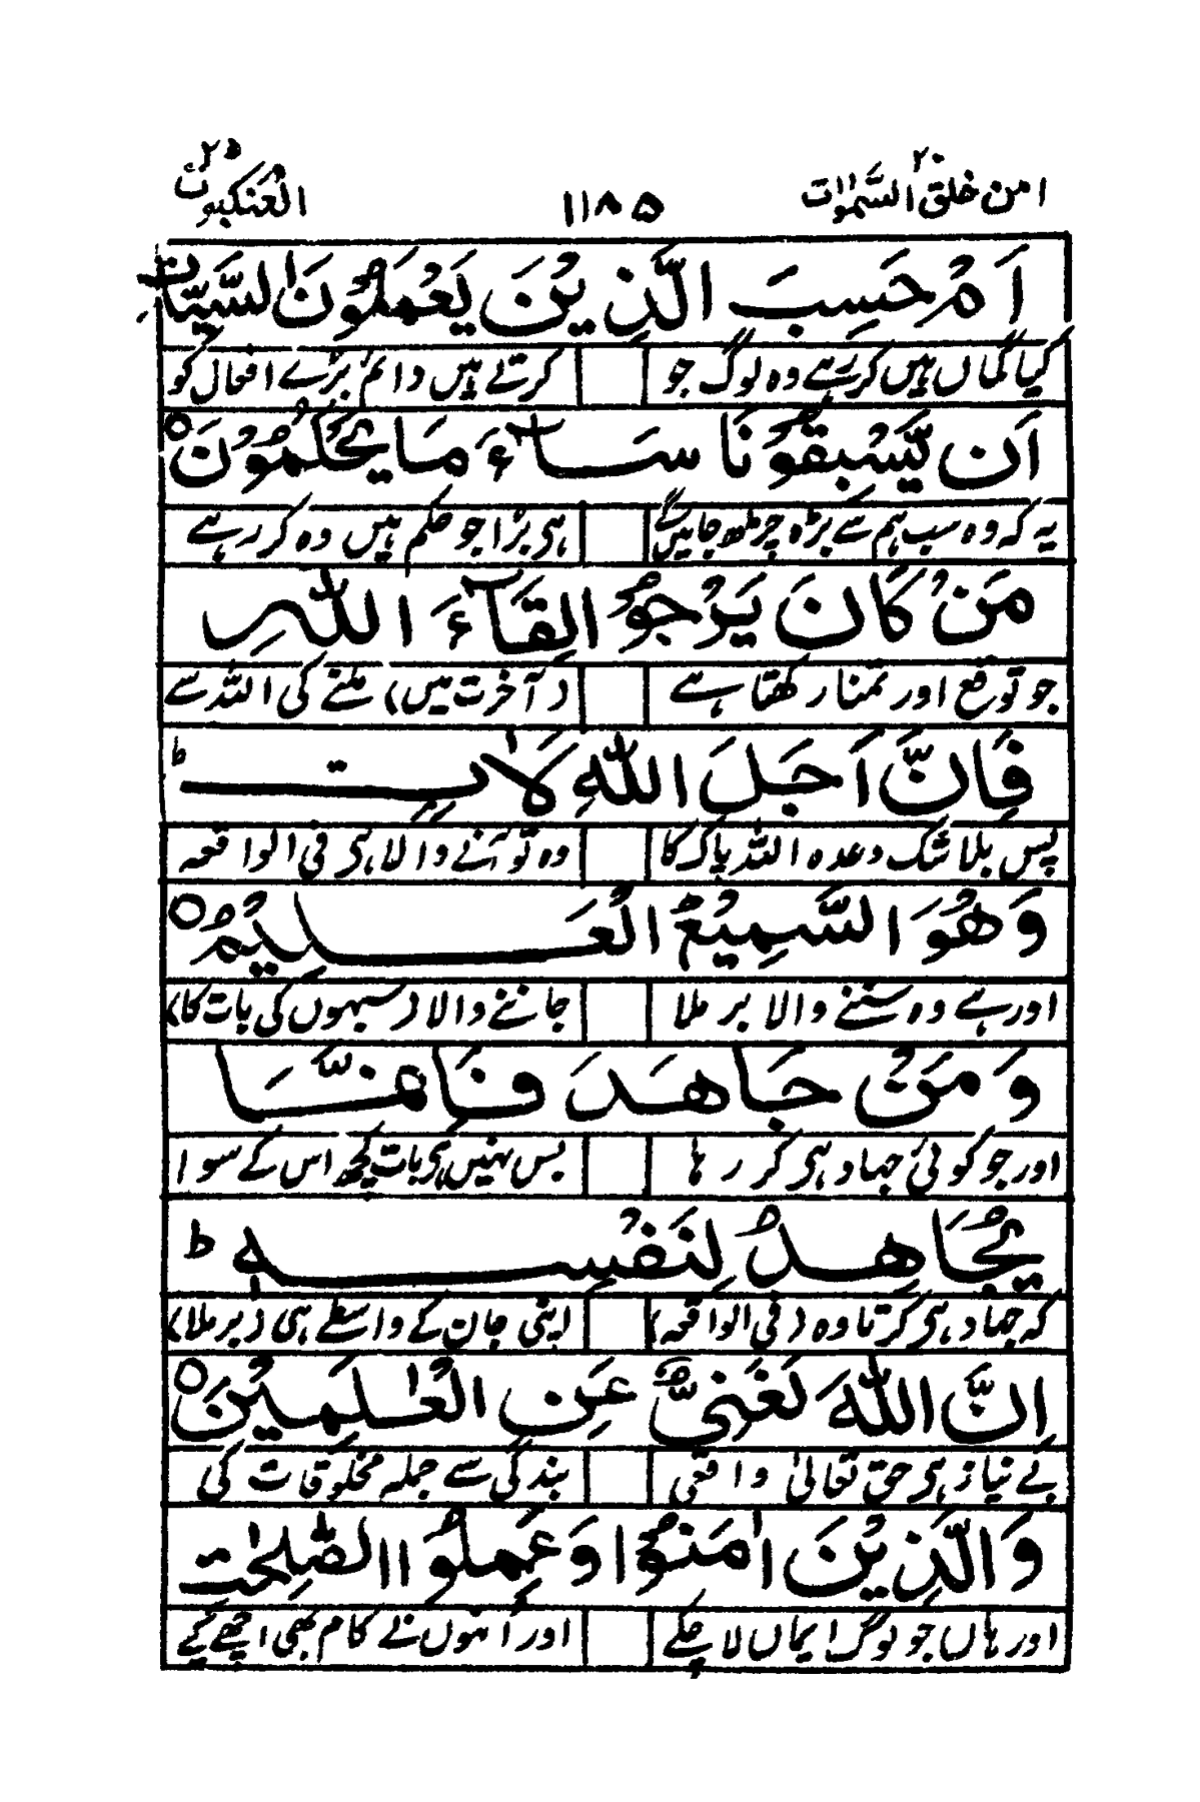 امن خلق السمٰوات ۲۰ ۱۱۸۵ العنکبوت ۲۹
اَمْ حَسِبَ الَّذِيْنَ يَعْمَلُوْنَ السَّيِّاٰتِ
کیا گماں ہیں کر رہے وہ لوگ جو کرتے ہیں دائم بڑے افعال کو
اَنْ يَّسْبِقُوْنَا سَآءَ مَا يَحْكُمُوْنَ ○
یہ کہ وہ سب ہم سے بڑھ چڑھ جائیں گے ہی بڑا جو حکم ہیں وہ کر رہے
مَنْ كَانَ يَرْجُوْا لِقَآءَ اللّٰهِ
جو توقع اور تمنا رکھتا ہے (آخرت میں) ملنے کی اللہ سے
فَاِنَّ اَجَلَ اللّٰهِ لَاٰتٍ ط
پس بلا شک وعدہ اللہ پاک کا وہ تو آنے والا ہی فی الواقعہ
وَهُوَ السَّمِيْعُ الْعَلِيْمُ ○
اور ہے وہ سننے والا بر ملا جاننے والا (سبھوں کی بات کا)
وَمَنْ جَاهَدَ فَاِنَّمَا
اور جو کوئی جہاد ہی کر رہا بس نہیں ہی بات کچھ اس کے سوا
يُجَاهِدُ لِنَفْسِهٖ ط
کہ جہاد ہی کرتا وہ (فی الواقعہ) اپنی جان کے واسطے ہی (بر ملا)
اِنَّ اللّٰهَ لَغَنِيٌّ عَنِ الْعٰلَمِيْنَ ○
بے نیاز ہی حق تعالیٰ واقعی بندگی سے جملہ مخلوقات کی
وَالَّذِيْنَ اٰمَنُوْا وَعَمِلُوا الصّٰلِحٰتِ
اور ہاں جو لوگ ایماں لا چکے اور اُنہوں نے کام بھی اچھے کیے